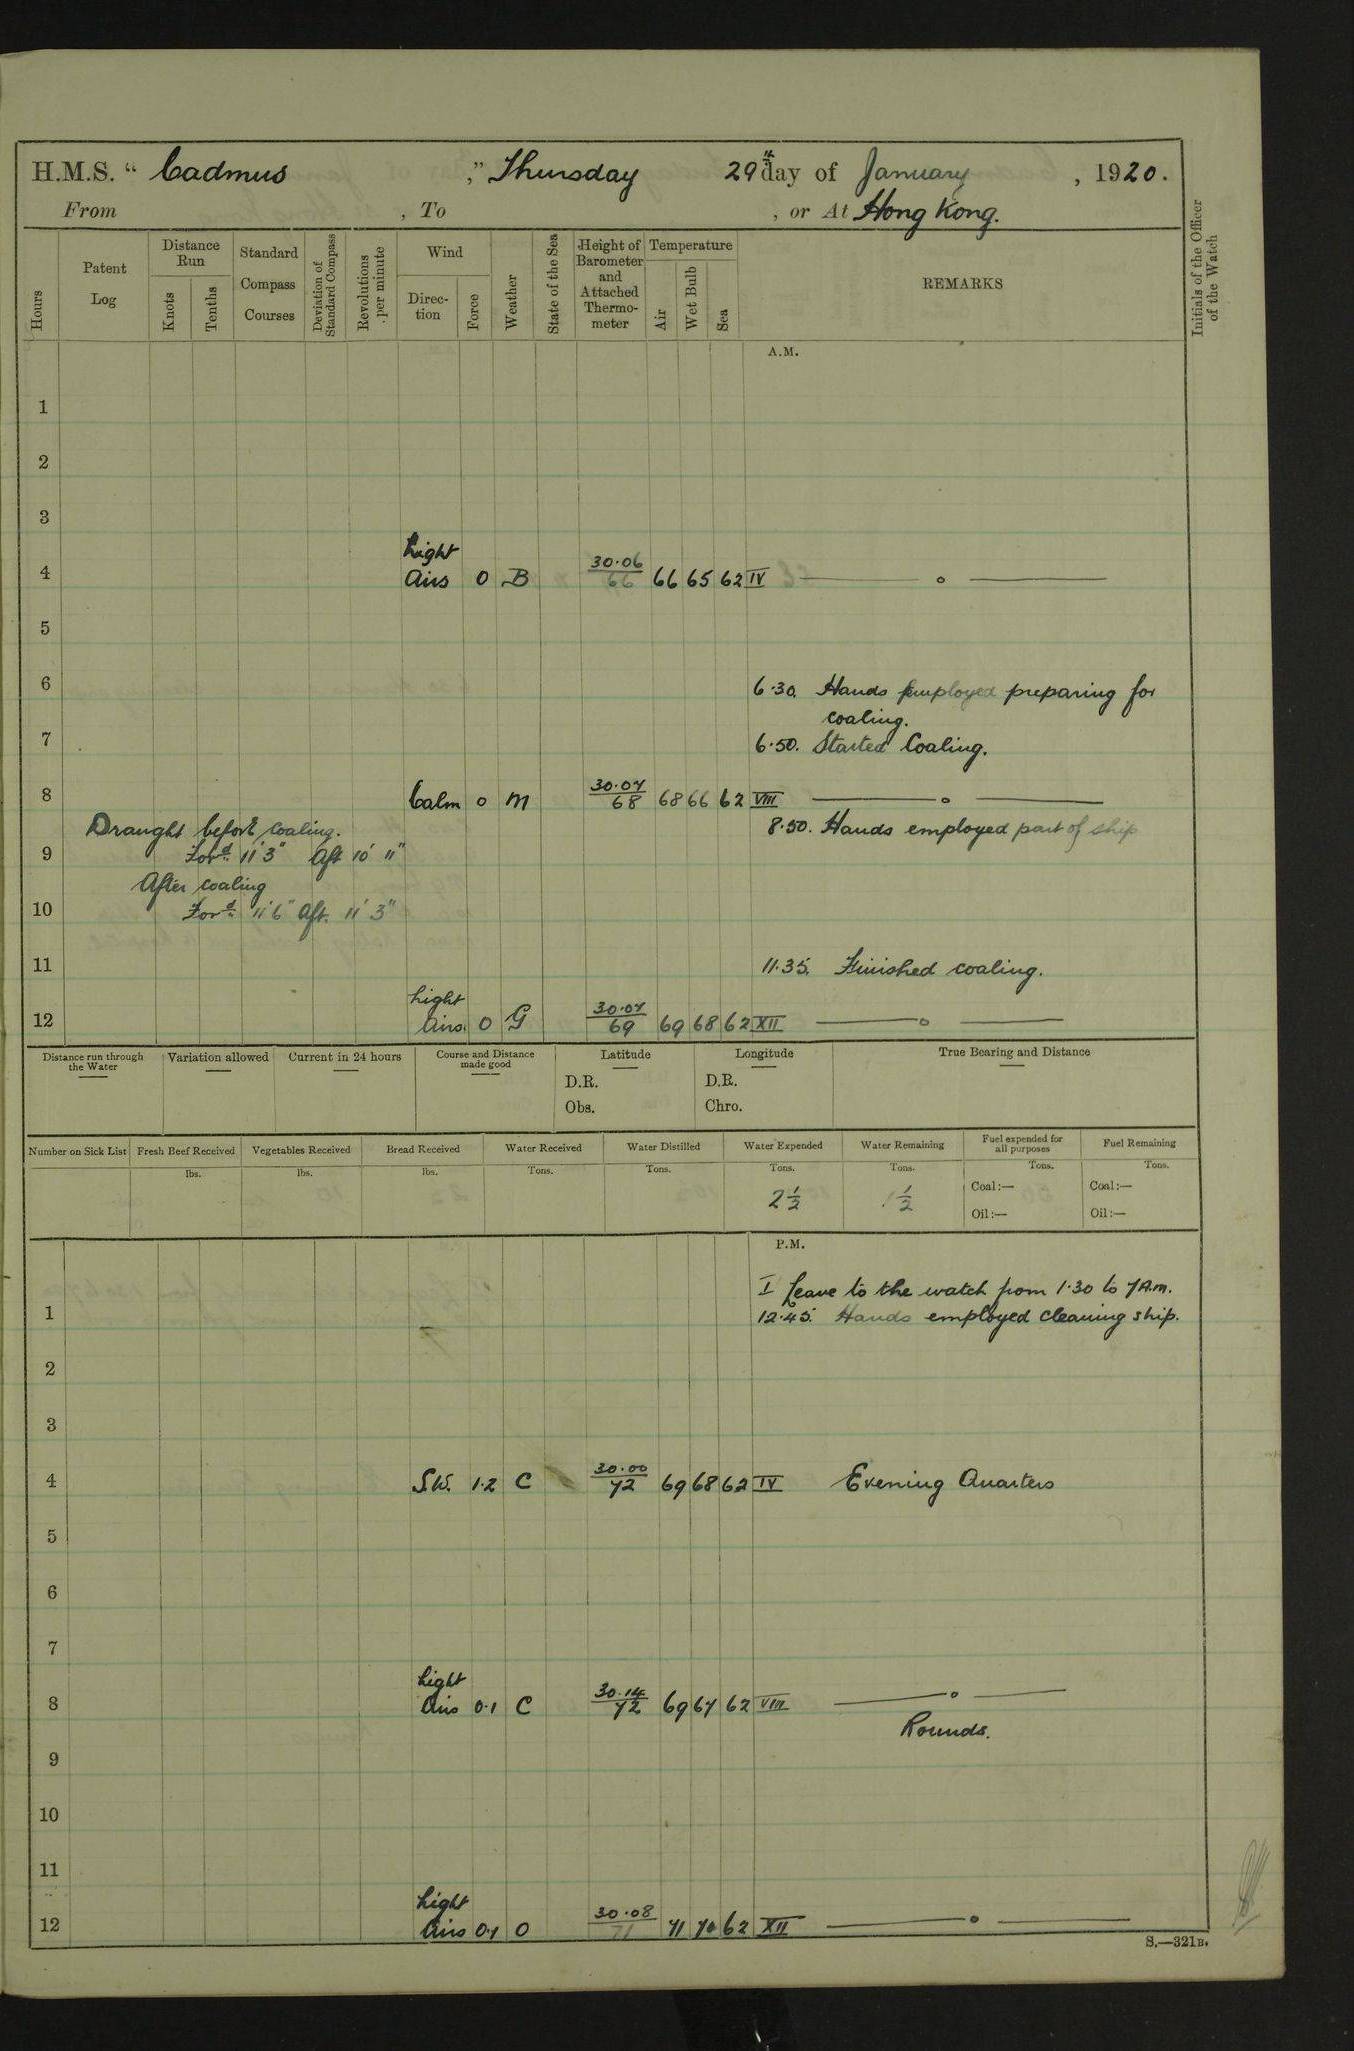 H.M.S. “ Cadmus ,” Thursday 29th day of January , 1920.
From , To , or At Hong Kong.
Hours
Patent Log
Distance Run
Knots
Tenths
Standard Compass Courses
Deviation of Standard Compass
Revolutions per minute
Wind
Direction
Force
Weather
State of the Sea
Height of Barometer and Attached Thermometer
Temperature
Air
Wet Bulb
Sea
REMARKS
Initials of the Officer of the Watch
A.M.
1
2
3
Light
4 Airs 0 B 30.06/66 66 65 62 IV
5
6 6.30. Hands employed preparing for
coaling.
7 6.50. Started Coaling.
8 Calm 0 M 30.07/68 68 66 62 VIII
Draught before coaling. 8.50. Hands employed part of ship
9 Ford. 11' 3" Aft 10' 11"
After coaling
10 Ford. 11' 6" Aft. 11' 3"
11 11.35. Finished coaling.
Light
12 Airs. 0 G 30.07/69 69 68 62 XII
Distance run through the Water
Variation allowed
Current in 24 hours
Course and Distance made good
Latitude
D.R.
Obs.
Longitude
D.R.
Chro.
True Bearing and Distance
Number on Sick List
Fresh Beef Received
lbs.
Vegetables Received
lbs.
Bread Received
lbs.
Water Received
Tons.
Water Distilled
Tons.
Water Expended
Tons.
2 1/2
Water Remaining
Tons.
1/2
Fuel expended for all purposes
Tons.
Coal:—
Oil:—
Fuel Remaining
Tons.
Coal:—
Oil:—
P.M.
I Leave to the watch from 1.30 to 7 A.m.
1 12.45. Hands employed cleaning ship.
2
3
4 S.W. 1.2 C 30.00/72 69 68 62 IV Evening Quarters
5
6
7
Light
8 Airs 0.1 C 30.14/72 69 67 62 VIII
Rounds.
9
10
11
Light
12 Airs 0.1 O 30.08/71 71 70 62 XII
S.—321B.